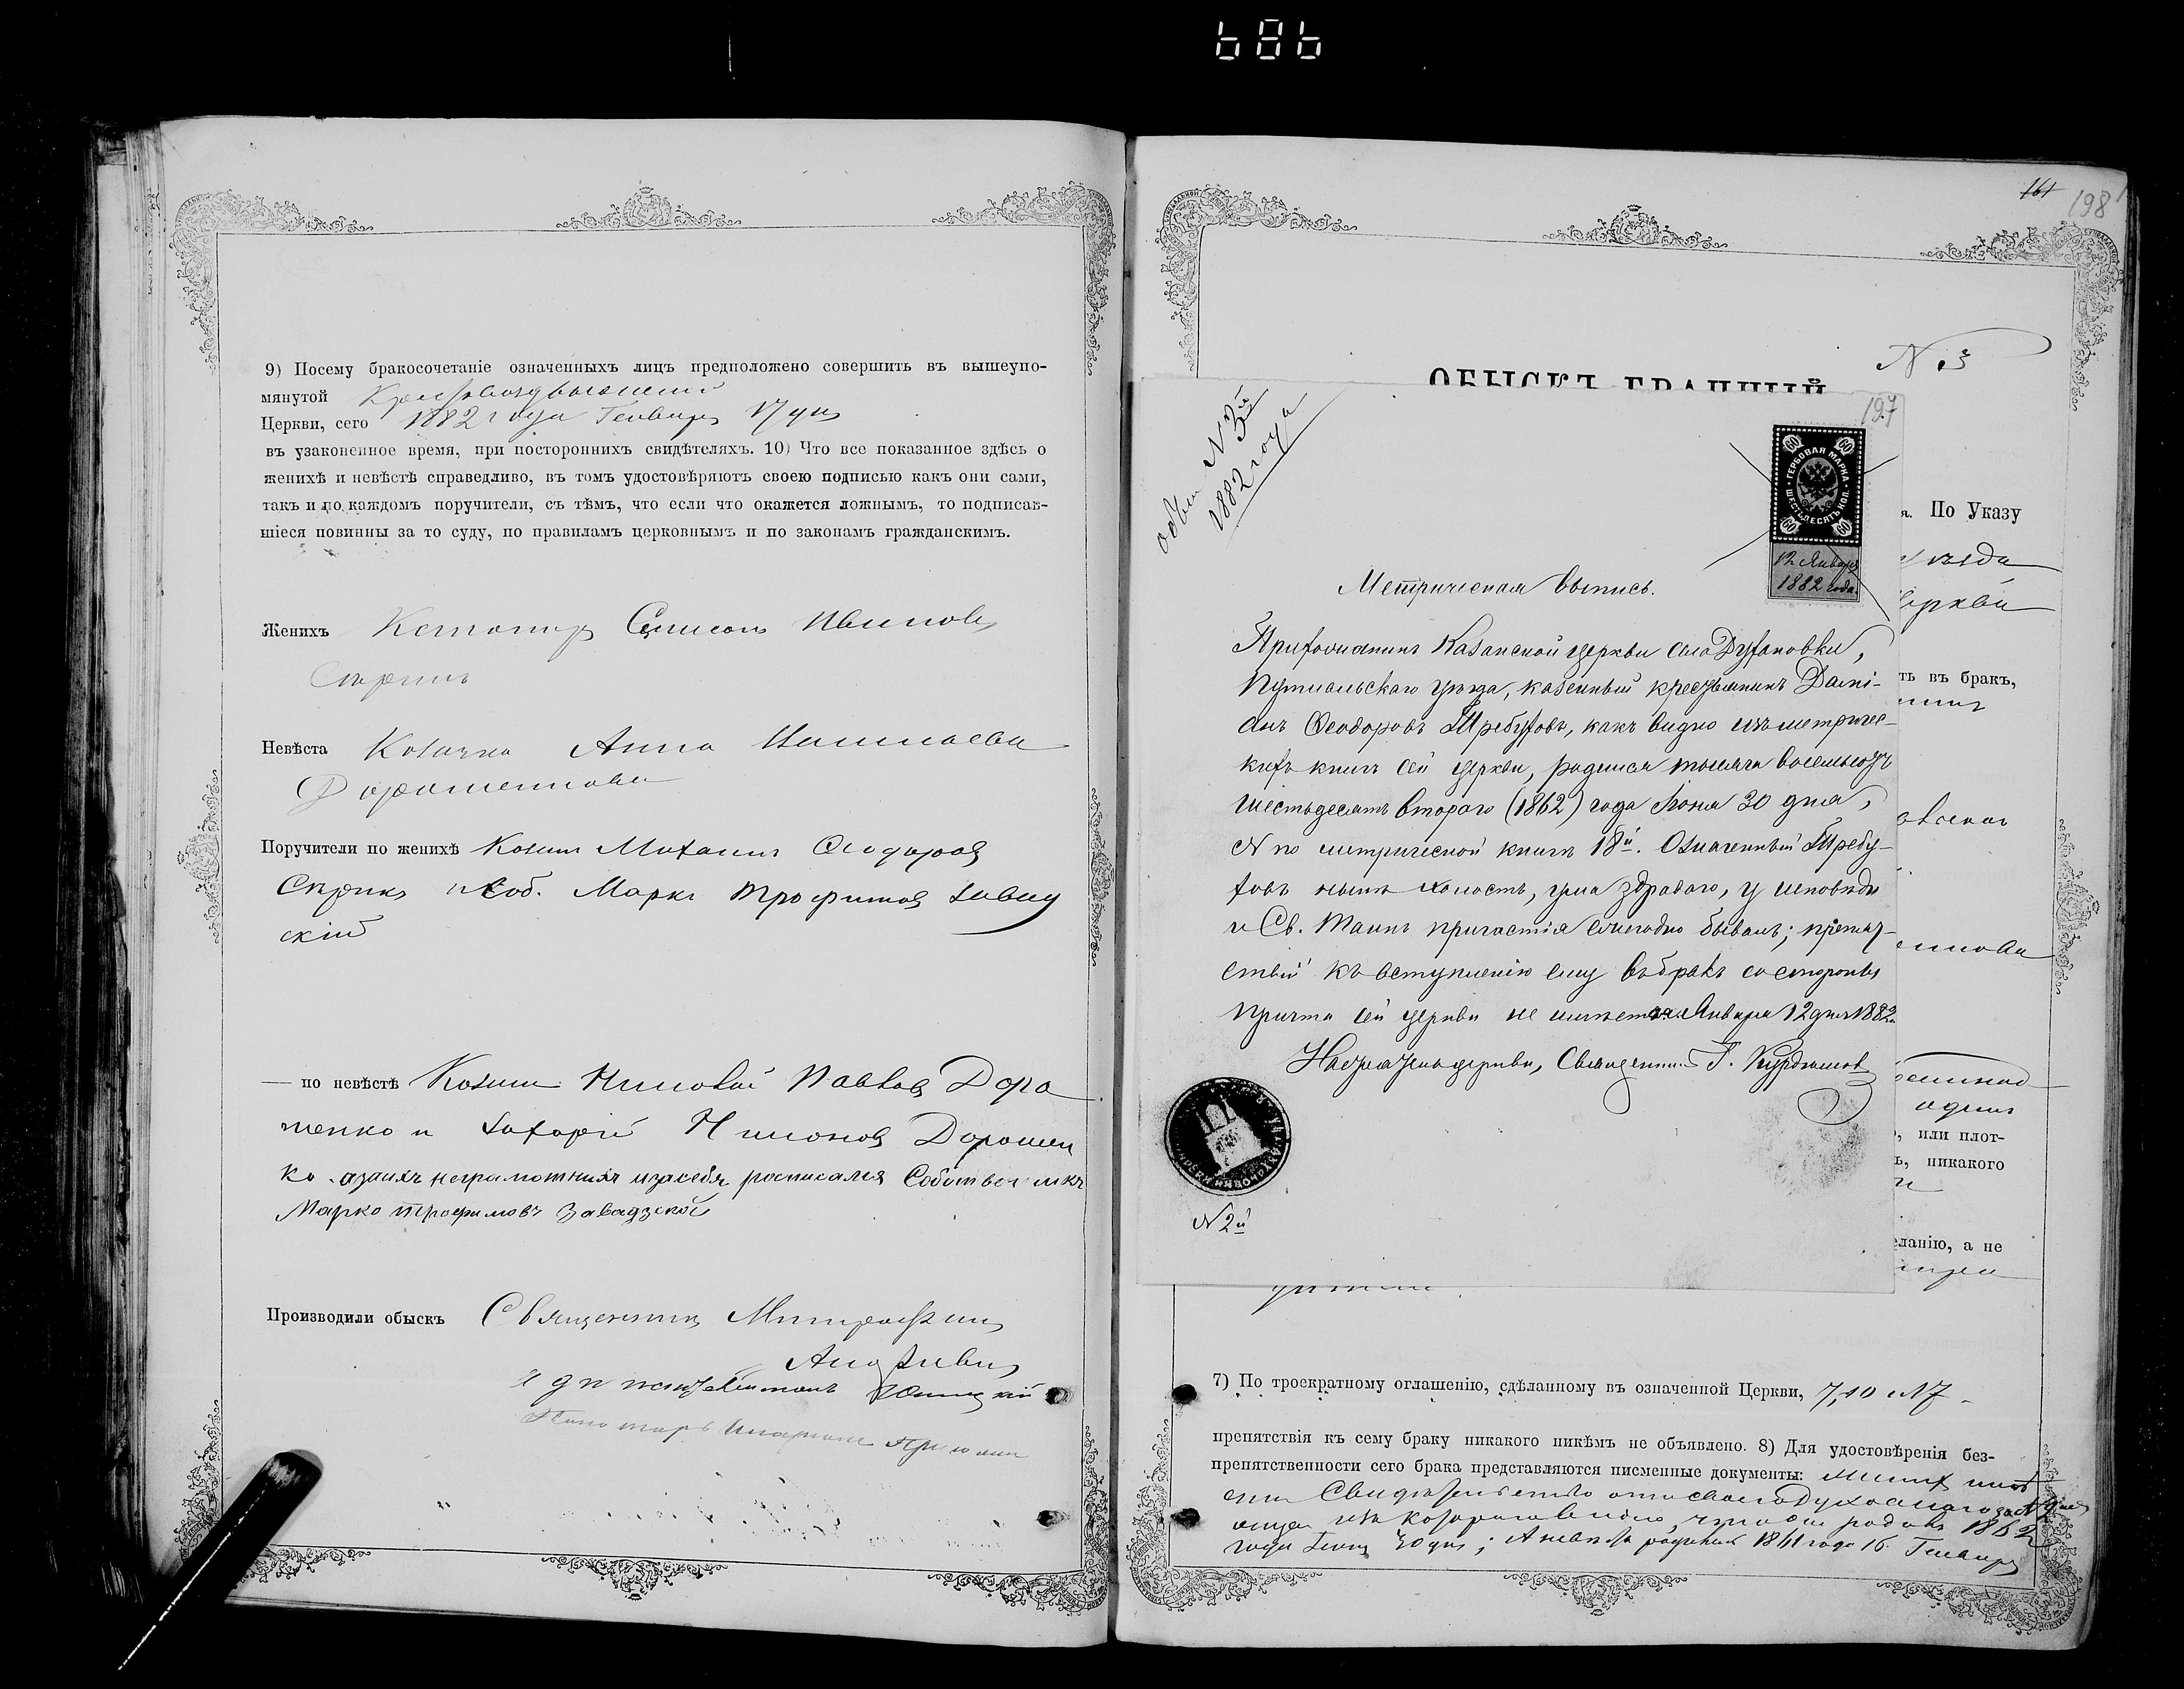 9) Посему бракосочетаніе означенныхъ лицъ предположено совершить въ вышеупо-
мянутой Крестовоздвиженской
Церкви, сего 1882 года Генваря 17 дня
въ узаконенное время, при постороннихъ свидѣтеляхъ. 10) Что все показанное здѣсь о
женихѣ и невѣстѣ справедливо, въ томъ удостовѣряютъ своею подписью какъ они сами,
такъ и по каждомъ поручители, съ тѣмъ, что если что окажется ложнымъ, то подписав-
шіеся повинны за то суду, по правиламъ церковнымъ и по законамъ гражданскимъ.
Женихъ Ивановъ
Невѣста Козачка Анна
Дорошенкова
Поручители по женихѣ Козаки Михаилъ Феодоровъ
и соб. Марко Трофимовъ Завад
скій
— по невѣстѣ Козаки Павловъ Доро
шенко и Захарій Дорошен
ко. азанихъ неграмотнихъ изасебя росписался Собственикъ
Марко Трофимовъ Завадзской
Производили обыскъ Священникъ Митрофанъ
161
198
N 3
ОБЫСКЪ БРАЧНЫЙ
197
N 3й
1882 года
ГЕРБОВАЯ МАРКА
ШЕСТЬДЕСЯТЪ КОП.
60 60 60 60
12 Января
1882 года.
я. По Указу
уѣзда
Церкви
ть въ бракъ,
Метрическая выпись.
Прихожанинъ Казанской церкви села Духановки,
Путивльскаго уѣзда, казенный крестьянинъ Дамі-
анъ Феодоровъ Требуховъ, какъ видно изъ метричес-
кихъ книгъ сей церкви, родился тысяча восемьсотъ
шестьдесятъ втораго (1862) года Іюня 30 дня,
N по метрической книгѣ 18й. Означенный Требу-
ховъ нынѣ холостъ, ума здраваго, у исповѣди
и Св. Таинъ причастія ежегодно бывалъ; препят-
ствій къ вступленію ему въ бракъ со стороны
причта сей церкви не имѣется. Января 12 дня 1882
Настоятель церкви, Священникъ Г. Курдюмовъ
N 2й
одинъ
, или плот-
ъ, никакого
еланію, а не
7) По троекратному оглашенію, сдѣланному въ означенной Церкви, 7, 10 и
препятствія къ сему браку никакого никѣмъ не объявлено. 8) Для удостовѣренія без-
препятственности сего брака представляются писменные документы:
Свидѣтельство отъ своего Духовнаго
отца изъ котораго видно, что онъ родился 1862
года 30 дня; А невѣста родилась 1861 года 16 Генваря